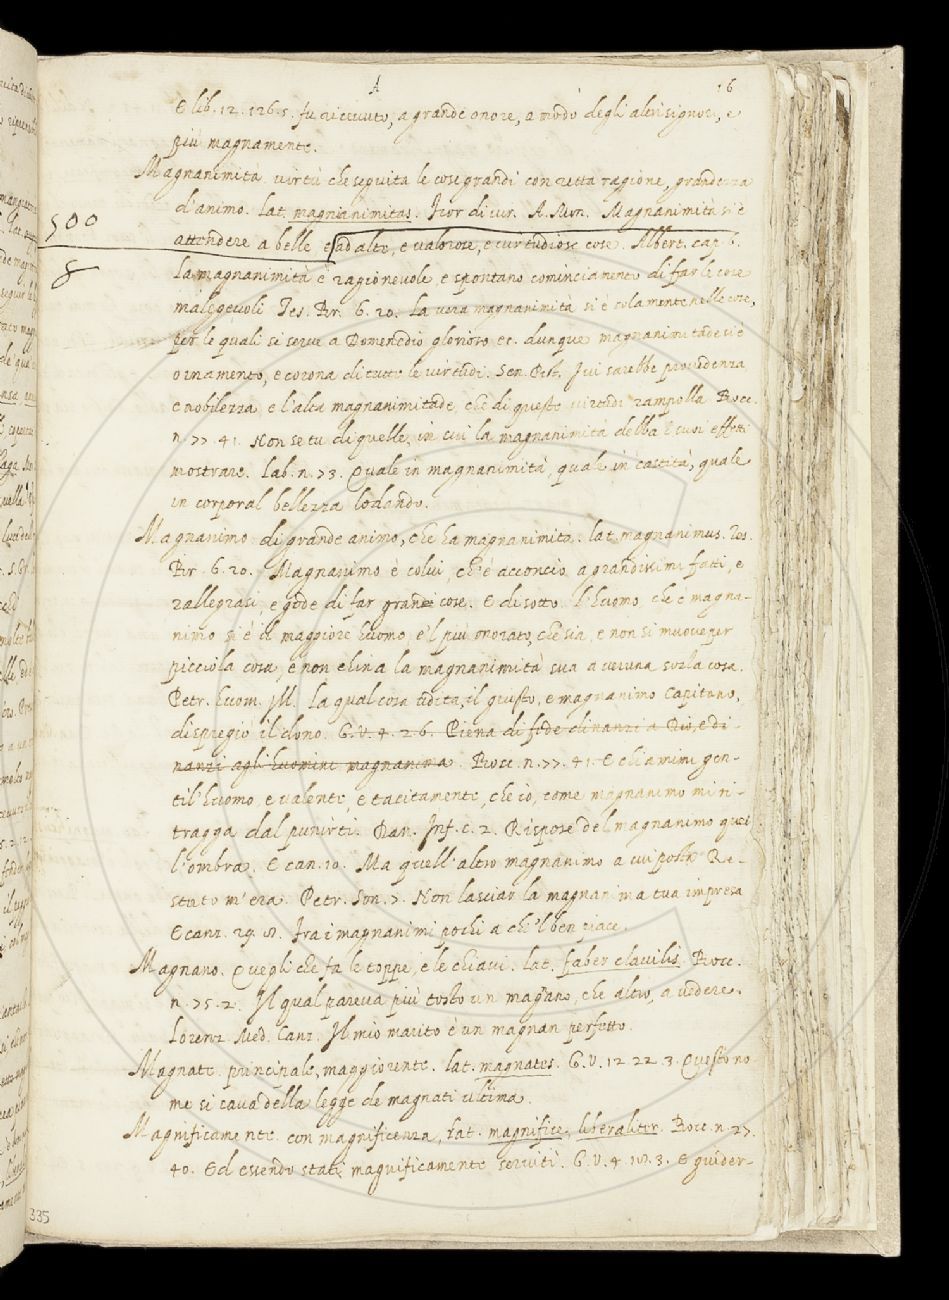 A 16
E lib. 12. 126. 5. fu ricevuto, a grande onore, a modo degli altri signori, e
più magnamente.
Magnanimità. virtù che seguita le cose grandi con retta ragione, grandezza
d'animo. lat. magnianimitas. Fior di vir. A. Mun. Magnanimità si è
500
attendere a belle e ad alte, e valorose, e virtudiose cose. Albert. cap. 6.
8
la magnanimità è ragionevole, e spontano cominciamento di far le cose
malegevoli Tes. Br. 6. 20. la vera magnanimità si è solamente nelle cose,
per le quali si serve a Domenedio glorioso ec. dunque magnanimitade si è
ornamento, e corona di tutte le virtudi. Sen. Pist. Ivi sarebbe provedenza
e nobilezza, e l'alta magnanimitade, che di queste virtudi rampolla Bocc.
n. 77. 41. Non se tu di quelle, in cui la magnanimità debba i suoi effetti
mostrare. lab. n. 73. Quale in magnanimità, quale in castità, quale
in corporal bellezza lodando.
Magnanimo di grande animo, che ha magnanimità. lat. magnanimus. Tes.
Br. 6. 20. Magnanimo è colui, ch'è acconcio a grandissimi fatti, e
rallegrasi, e gode di far grandi cose. E di sotto. l'huomo, che è magna-
nimo si è il maggiore huomo, e'l più onorato, che sia, e non si muove per
picciola cosa, e non china la magnanimità sua a veruna sozza cosa.
Petr. huom. Ill. la qual cosa udita, il giusto, e magnanimo Capitano,
dispregiò il dono. G. V. 4. 26. Piena di fede dinanzi a Dio, e di
nanzi agli huomini magnanima. Bocc. n. 77. 41. E chiamimi gen-
til'huomo, e valente, e tacitamente, che io, come magnanimo mi ri-
tragga dal punirti. Dan. Inf. c. 2. Rispose del magnanimo quei
l'ombra. E can. 10. Ma quell'altro magnanimo a cui posta Re-
stato m'era. Petr. Son. 7. Non lasciar la magnanima tua impresa
E canz. 29. 8. Fra i magnanimi pochi a chi 'l ben piace.
Magnano. Quegli che fa le toppe, e le chiavi. lat. faber clavilis. Bocc.
n. 75. 2. Il qual pareva più tosto un magnano, che altro, a vedere.
Lorenz. Med. Canz. Il mio marito è un magnan perfetto.
Magnate. principale, maggiorente. lat. magnates. G. V. 12 22. 3. Questo no-
me si cava della legge de magnati ultima.
Magnificamente. con magnificenza, lat. magnifice, liberaliter. Bocc. n. 27.
40. Ed essendo stati magnificamente serviti. G. V. 4. 18. 3. E guider-
335